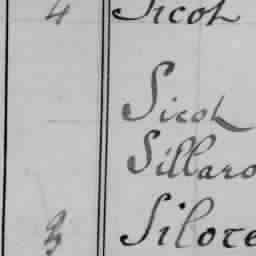 4 Sicot
Sicot
Sillaro
3 Silore